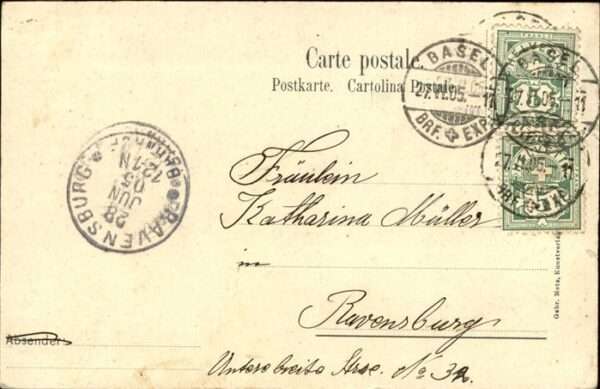 Carte postale.
Postkarte. Cartolina Postale.
BASEL
27.VI.05.–11
BRF. EXP.
BASEL
7.VI.05. 11
7.VI.05 11
BRF. EXP.
RAVENSBURG
BAHNHOF
28
JUN
05
12-1N
Fräulein
Katharina Müller
in
Ravensburg
Absender:
Untere breite Strse. No 32.
Gebr. Metz, Kunstverlag